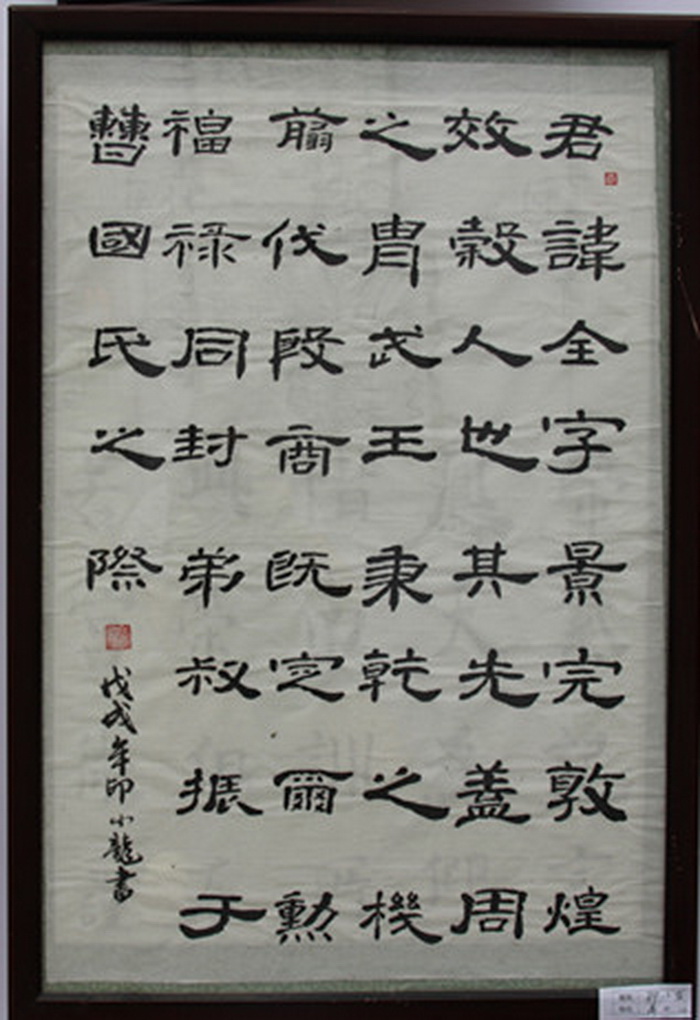 君諱全字景完敦煌
效穀人也其先蓋周
之胄武王秉乾之機
翦伐殷商既定爾勲
福禄同封弟叔振于
曹國氏之際
戊戌年印小龍書